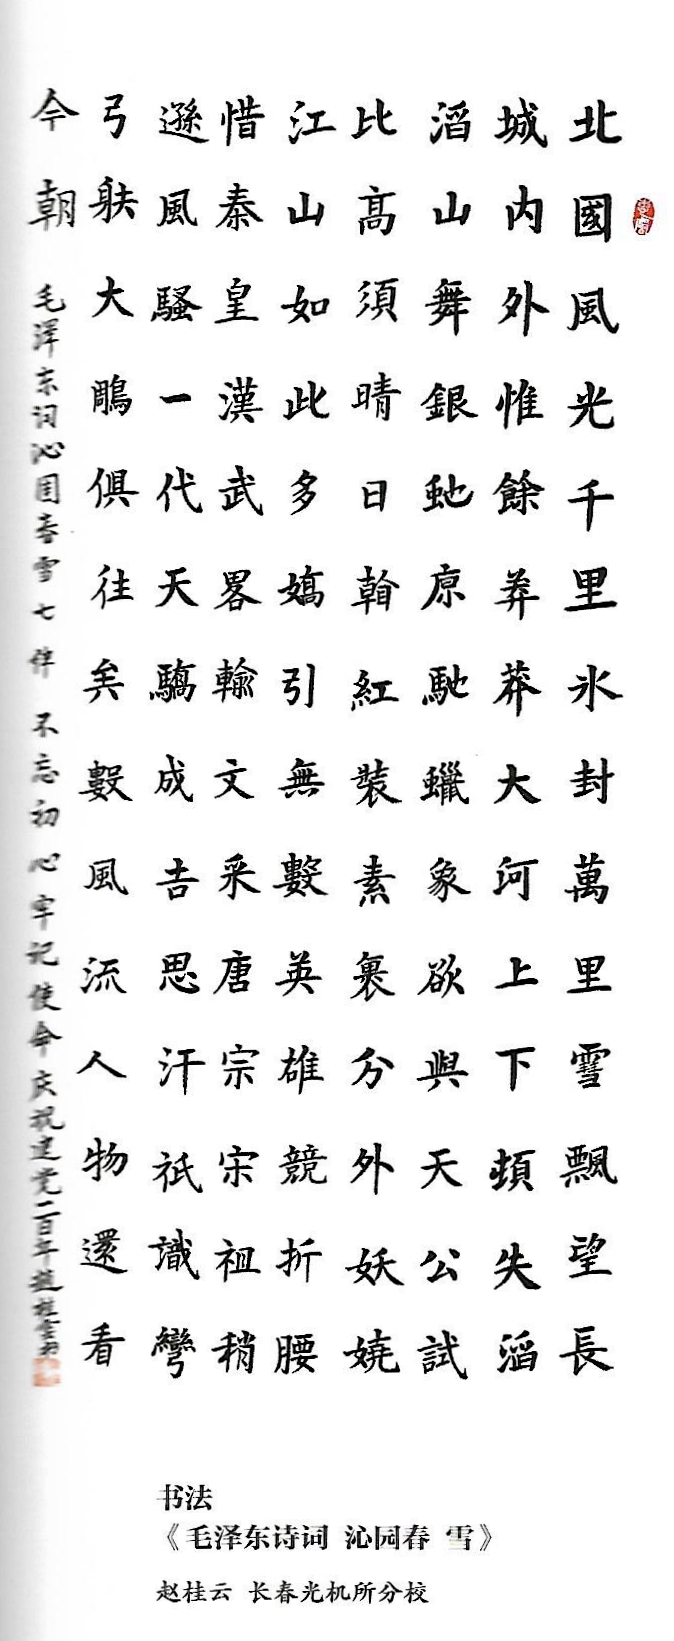 北國風光千里氷封萬里雪飄望長
城内外惟餘莽莽大河上下頓失滔
滔山舞銀虵原馳蠟象欲與天公試
比高須晴日看紅裝素裹分外妖嬈
江山如此多嬌引無數英雄競折腰
惜秦皇漢武畧輸文采唐宗宋祖稍
遜風騷一代天驕成吉思汗祇識彎
弓䠶大鵰俱往矣數風流人物還看
今朝
毛澤东词沁园春雪七律 不忘初心牢记使命庆祝建党一百年赵桂云书
书法
《毛泽东诗词 沁园春 雪》
赵桂云 长春光机所分校